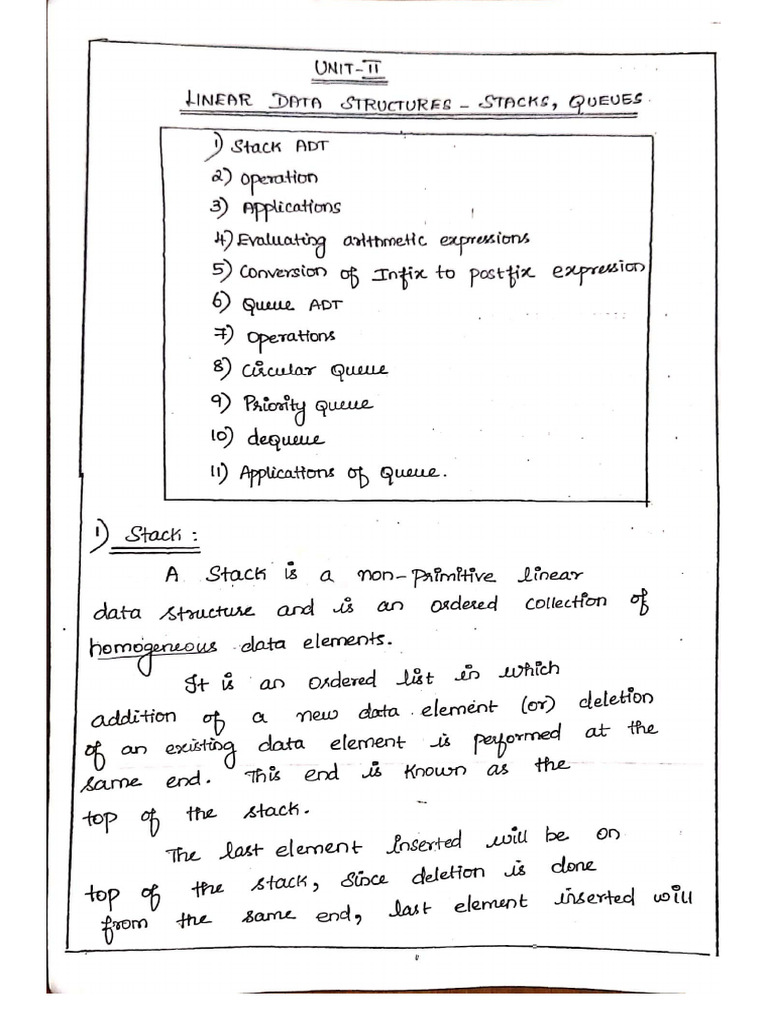 UNIT-II
LINEAR DATA STRUCTURES - STACKS, QUEUES.
1) Stack ADT
2) Operation
3) Applications
4) Evaluating arithmetic expressions
5) Conversion of Infix to postfix expression
6) Queue ADT
7) Operations
8) Circular Queue
9) Priority Queue
10) dequeue
11) Applications of Queue.
1) Stack :
A Stack is a non-primitive linear
data structure and is an ordered collection of
homogeneous data elements.
It is an ordered list in which
addition of a new data element (or) deletion
of an existing data element is performed at the
same end. This end is known as the
top of the stack.
The last element inserted will be on
top of the stack, since deletion is done
from the same end, last element inserted will